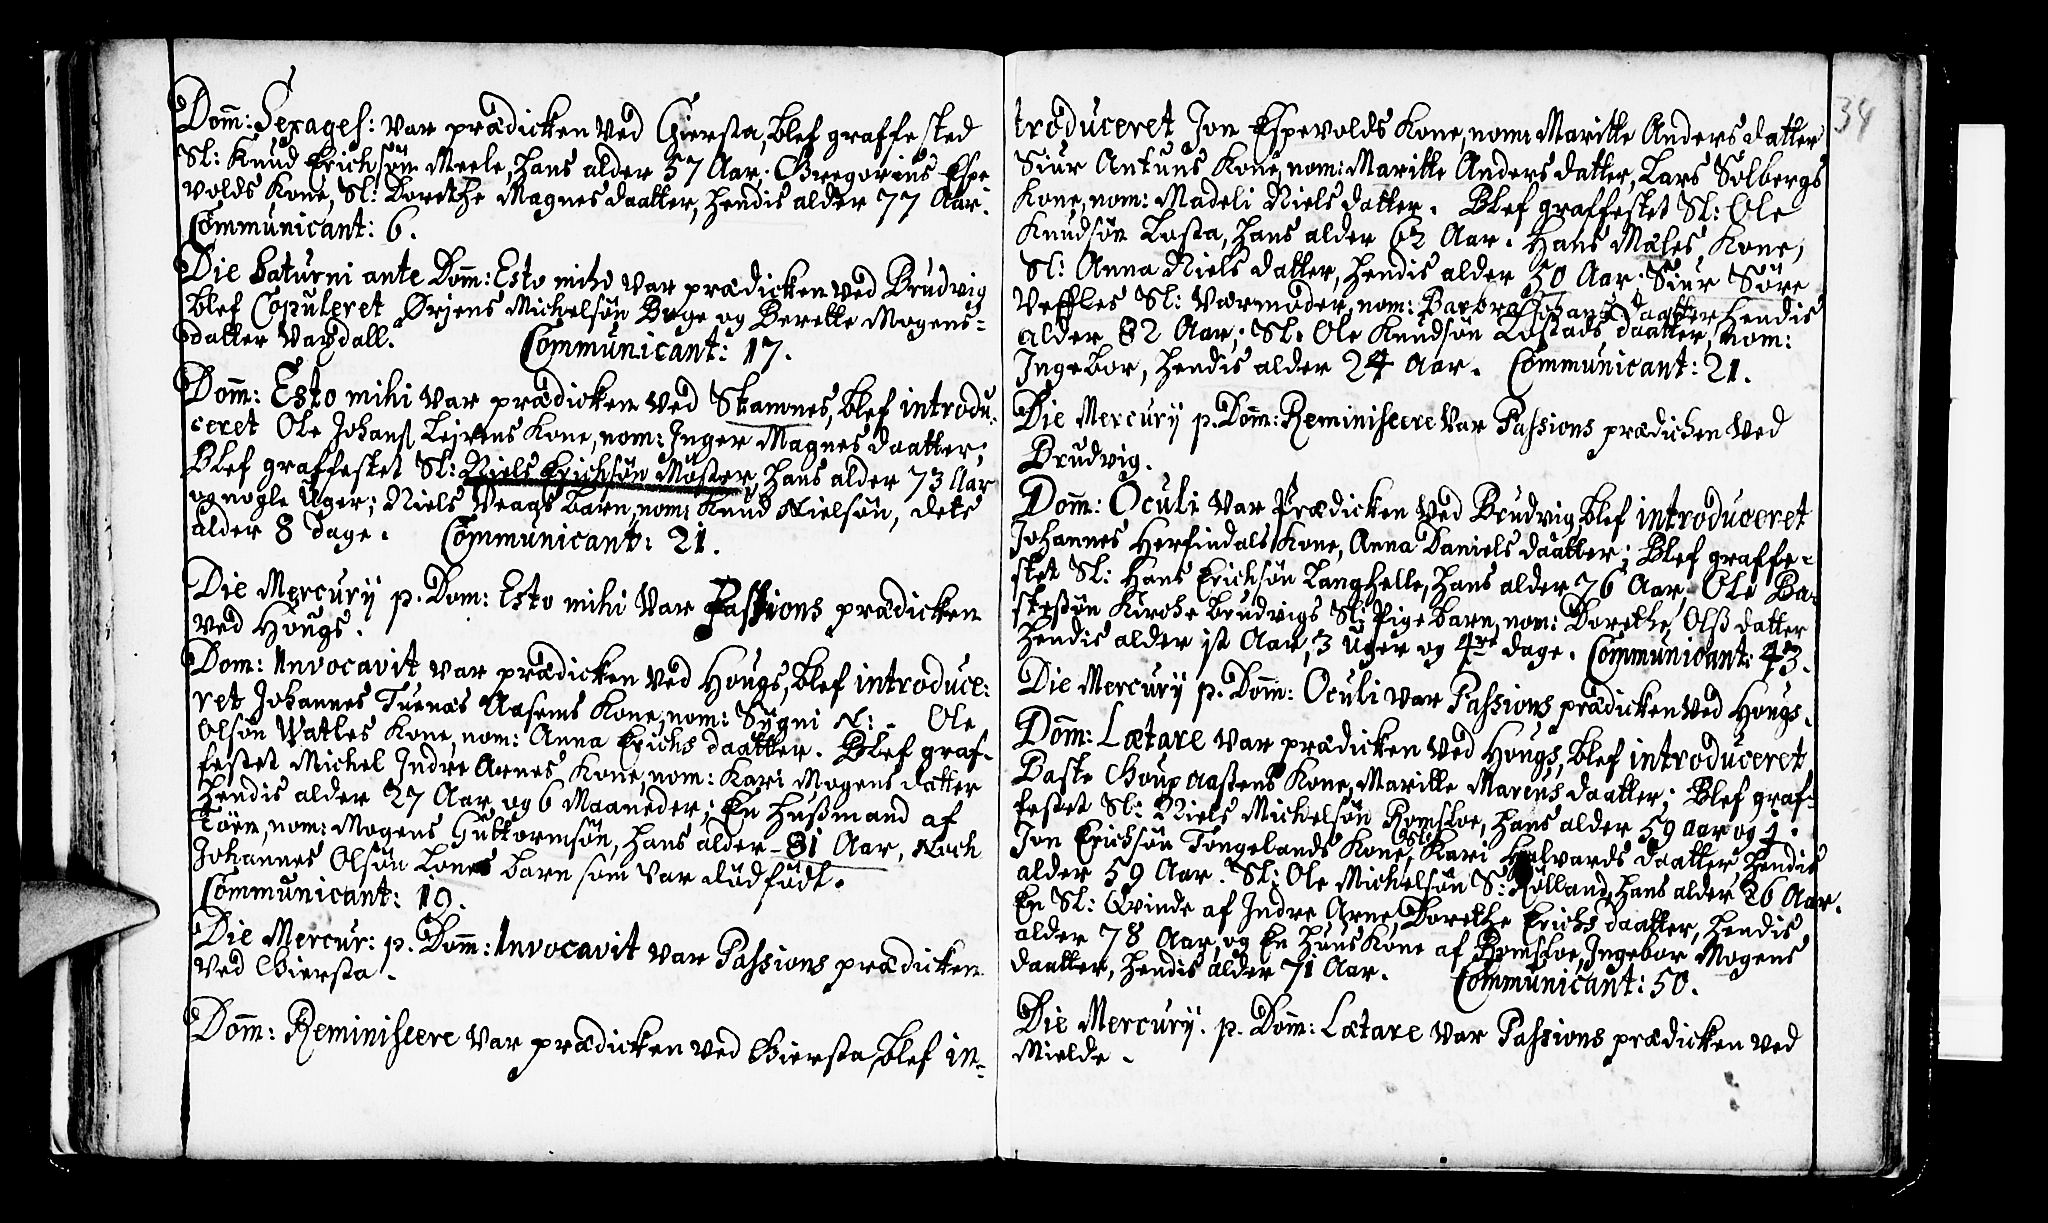 Dom̄: Sexages: var prædicken ved Giersta, blef graffested
Sl: Knud Erichsøn Meele, hans alder 57 Aar. Gregoriús Espe
volds Kone, Sl: Dorethe Magnes daatter, hendis alder 77 Aar.
Communicant: 6.
Die Saturni ante Dom̄: Esto mihi var prædicken ved Brudvig
blef Copuleret Ørjens Michelsøn Boge og Berette Mogens-
datter Vardall. Communicant: 17.
Dom̄: Esto mihi var prædicken ved Stamnes, blef introdu-
ceret Ole Johanſ Leirens Kone, nom: Inger Magnes daatter;
Blef graffestet Sl: Niels Erichsøn Møster, hans alder 73 Aar
og nogle Uger; Niels Veags barn, nom: Knud Nielsøn, dets
alder 8 dage. Communicant: 21.
Die Mercurij p. Dom: Esto mihi var Passions prædicken
ved Hougs.
Dom: Invocavit var prædicken ved Hougs, blef introduce:
ret Johannes Tuenæs Aasems Kone, nom: Sygni N: - Ole
Olsøn Watles Kone, nom: Anna Erichs daatter. Blef graf-
festet Michel Indre Arnes Kone, nom: Kari Mogens datter
hendis alder 27 Aar og 6 Maaneder; En Hußmand af
Tørn, nom: Mogens Guttormsøn, hans alder 81 Aar, Noch
Johannes Olsøn Lones barn som var dødfødt.
Communicant: 19.
Die Mercur: p. Dom̄: Invocavit var Passions prædicken
ved Giersta.
Dom̄: Reminiscere var prædicken ved Giersta, blef in-
34
troduceret Jon Espevolds Kone, nom: Maritte Anders datter
Siur Antuns Kone, nom: Maritte Anders datter, Lars Solbergs
Kone, nom: Madeli Niels datter. Blef graffestet Sl: Ole
Knudsøn Losta, hans alder 62 Aar. Hans Mæles Kone,
Sl: Anna Niels datter, hendis alder 50 Aar; Siur Søre
Veffles Sl: Værmoder, nom: Barbra Johans daatter hendis
alder 82 Aar; Sl: Ole Knudsøn Lostads daatter, nom:
Ingebor, hendis alder 24 Aar. Communicant: 21.
Die Mercurij p. Dom̄: Reminiscere var Passions prædicken ved
Brudvig.
Dom̄: Oculi var Prædicken ved Brudvig, blef introduceret
Johannes Herfindals Kone, Anna Daniels daatter; Blef graffe-
stet Sl: Hans Erichsøn Langhelle, hans alder 76 Aar, Ole Ba-
steßøn Kirche Brudvigs Sl: Pige barn, nom: Dorethe Olß datter
hendis alder jt Aar, 3 Uger og 4re dage. Communicant: 43.
Die Mercurij p. Dom̄: Oculi var Passions prædicken ved Hougs.
Dom̄: Lætare var prædicken ved Hougs, blef introduceret
Baste Goupaaßens Kone, Maritte Marcus daatter; Blef graf-
festet Sl: Niels Michelsøn Romsloe, hans alder 59 Aar og j.
Jon Erichsøn Tongelands Kone, Sl: Kari Halvards daatter, hendis
alder 59 Aar. Sl: Ole Michelsøn S: Rølland, hans alder 26 Aar.
En Sl: Qvinde af Indre Arne, Dorethe Erichs daatter, hendis
alder 78 Aar, og En Huns Kone af Romsloe, Ingebor Mogens
daatter, hendis alder 71 Aar. Communicant: 50.
Die Mercurij. p. Dom̄: Lætare var Passions prædicken ved
Mielde.